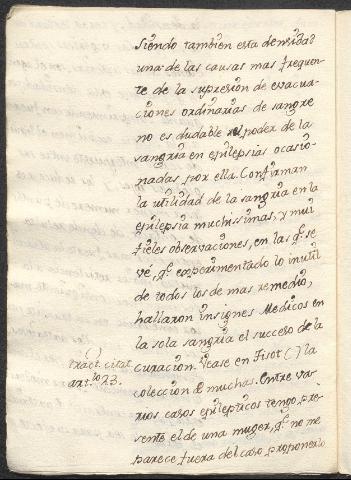 Siendo tambien esta densidad
una de las causas mas frequen-
te de la supresion de evacua-
ciones ordinarias de sangre
no es dudable el poder de la
sangria en epilepsias ocasio-
nadas por ella. Confirman
la utilidad de la sangria en la
epilepsia muchissimas, y mui
fieles observaciones, en las q.^e se
vé, q.^e experimentado lo inutil
de todos los demas remedios,
hallaron insignes Medicos en
la sola sangria el succeso de la
curacion. Vease en Tisot ( ) la
Tract. citat.
art.^lo 23.
coleccion de muchas. Entre va-
rios casos epilepticos tengo pre-
sente el de una muger, q.^e no me
parece fuera del caso proponerlo